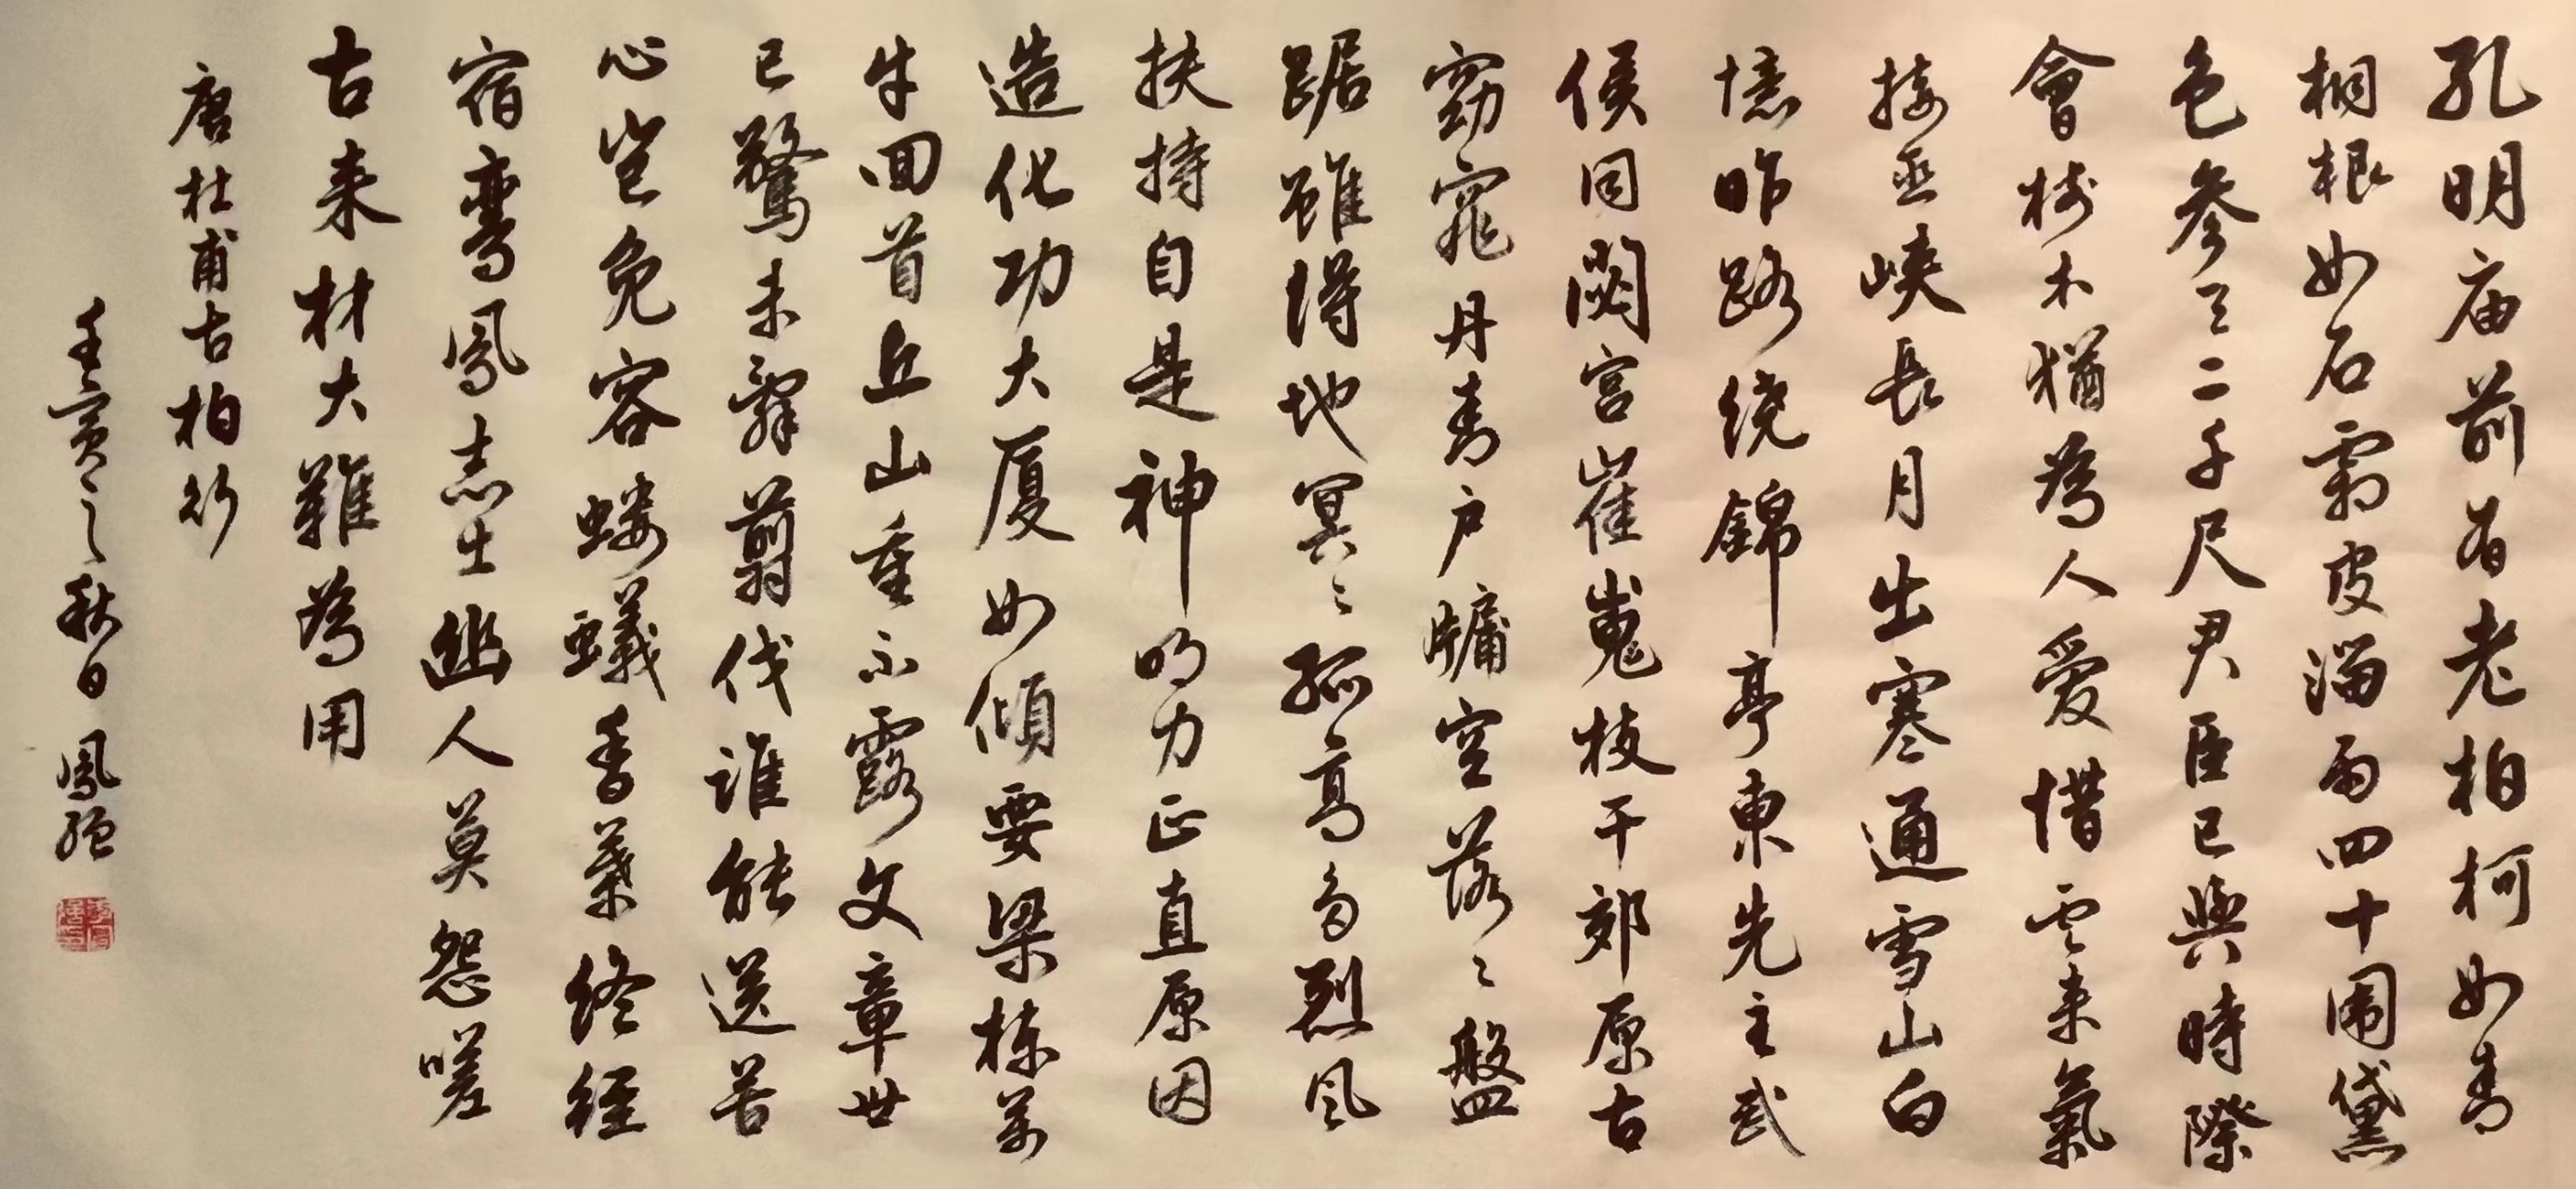 孔明庙前有老柏柯如青
桐根如石霜皮溜雨四十围黛
色参天二千尺君臣已與時際
會樹木猶為人爱惜雲来氣
接巫峡長月出寒通雪山白
憶昨路绕錦亭東先主武
侯同閟宫崔嵬枝干郊原古
窈窕丹青户牖空落々盤
踞雖得地冥々孤高多烈风
扶持自是神明力正直原因
造化功大厦如傾要梁栋萬
牛回首丘山重不露文章世
已驚未辭翦伐谁能送苦
心岂免容蝼蟻香葉终經
宿鸾鳳志士幽人莫怨嗟
古来材大難為用
唐杜甫古柏行
壬寅之秋日 鳳强